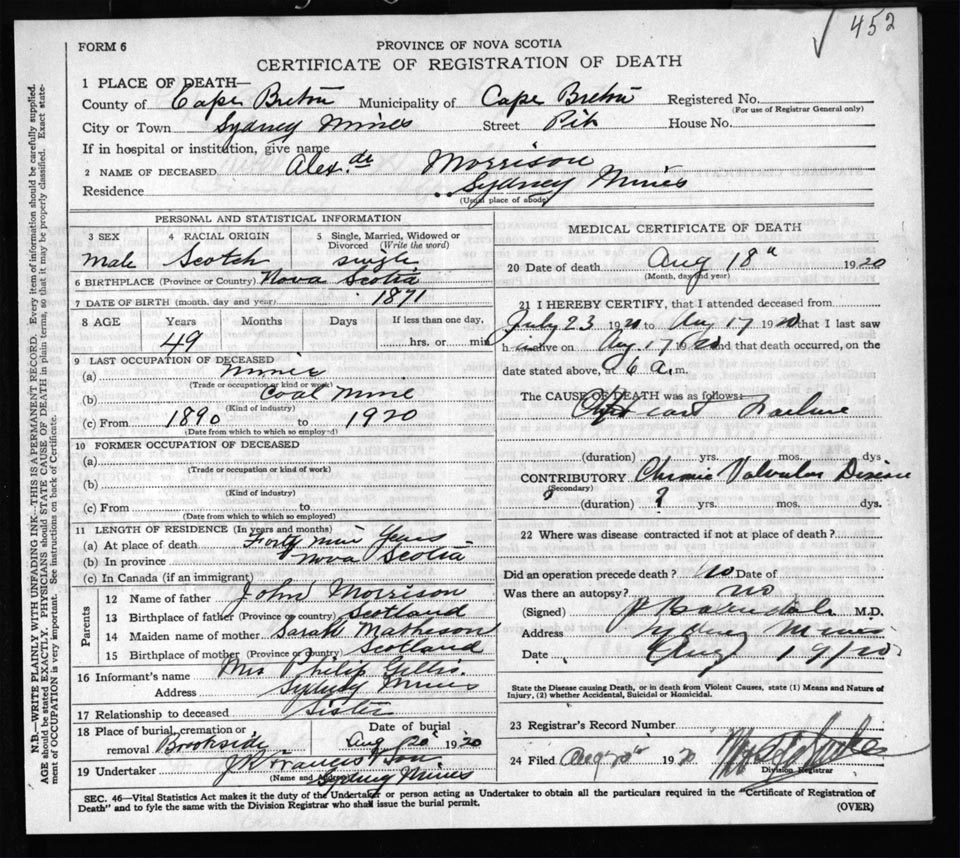 452
FORM 6
PROVINCE OF NOVA SCOTIA
CERTIFICATE OF REGISTRATION OF DEATH
1 PLACE OF DEATH—
County of Cape Breton Municipality of Cape Breton Registered No.
(For use of Registrar General only)
City or Town Sydney Mines Street Pitt House No.
If in hospital or institution, give name
2 NAME OF DECEASED Alex.dr Morrison
Residence Sydney Mines
(Usual place of abode)
PERSONAL AND STATISTICAL INFORMATION
3 SEX 4 RACIAL ORIGIN 5 Single, Married, Widowed or Divorced (Write the word)
Male Scotch single
6 BIRTHPLACE (Province or Country) Nova Scotia
7 DATE OF BIRTH (month, day and year) 1871
8 AGE Years Months Days If less than one day,
49 hrs. or min.
9 LAST OCCUPATION OF DECEASED
(a) Miner
(Trade or occupation or kind of work)
(b) Coal Mine
(Kind of industry)
(c) From 1890 to 1920
(Date from which to which so employed)
10 FORMER OCCUPATION OF DECEASED
(a)
(Trade or occupation or kind of work)
(b)
(Kind of industry)
(c) From to
(Date from which to which so employed)
11 LENGTH OF RESIDENCE (In years and months)
(a) At place of death Forty nine Years
(b) In province Nova Scotia
(c) In Canada (if an immigrant)
Parents
12 Name of father John Morrison
13 Birthplace of father (Province or country) Scotland
14 Maiden name of mother Sarah Matheson
15 Birthplace of mother (Province or country) Scotland
16 Informant's name Mrs Philip Gillis
Address Sydney Mines
17 Relationship to deceased Sister
18 Place of burial, cremation or removal Brookside
Date of burial Aug 20 1920
19 Undertaker J R Francis & Son
(Name and Address) Sydney Mines
MEDICAL CERTIFICATE OF DEATH
20 Date of death Aug 18" 1920
(Month, day and year)
21 I HEREBY CERTIFY, that I attended deceased from
July 23 1920 to Aug 17 1920 that I last saw
him alive on Aug 17 1920 and that death occurred, on the
date stated above, at 6 a.m.
The CAUSE OF DEATH was as follows:
Failure
(duration) yrs. mos. dys
CONTRIBUTORY Chronic Valvular Disease
(Secondary)
? (duration) ? yrs. mos. dys.
22 Where was disease contracted if not at place of death?
Did an operation precede death? No Date of
Was there an autopsy? No
(Signed) M.D.
Address Sydney Mines
Date Aug 19/20
State the Disease causing Death, or in death from Violent Causes, state (1) Means and Nature of
Injury, (2) whether Accidental, Suicidal or Homicidal.
23 Registrar's Record Number
24 Filed Aug 20 1920
Division Registrar
SEC. 46—Vital Statistics Act makes it the duty of the Undertaker or person acting as Undertaker to obtain all the particulars required in the "Certificate of Registration of
Death" and to fyle the same with the Division Registrar who shall issue the burial permit.
(OVER)
N.B.—WRITE PLAINLY WITH UNFADING INK—THIS IS A PERMANENT RECORD. Every item of information should be carefully supplied.
AGE should be stated EXACTLY. PHYSICIANS should STATE CAUSE OF DEATH in plain terms, so that it may be properly classified. Exact state-
ment of OCCUPATION is very important. See instructions on back of Certificate.